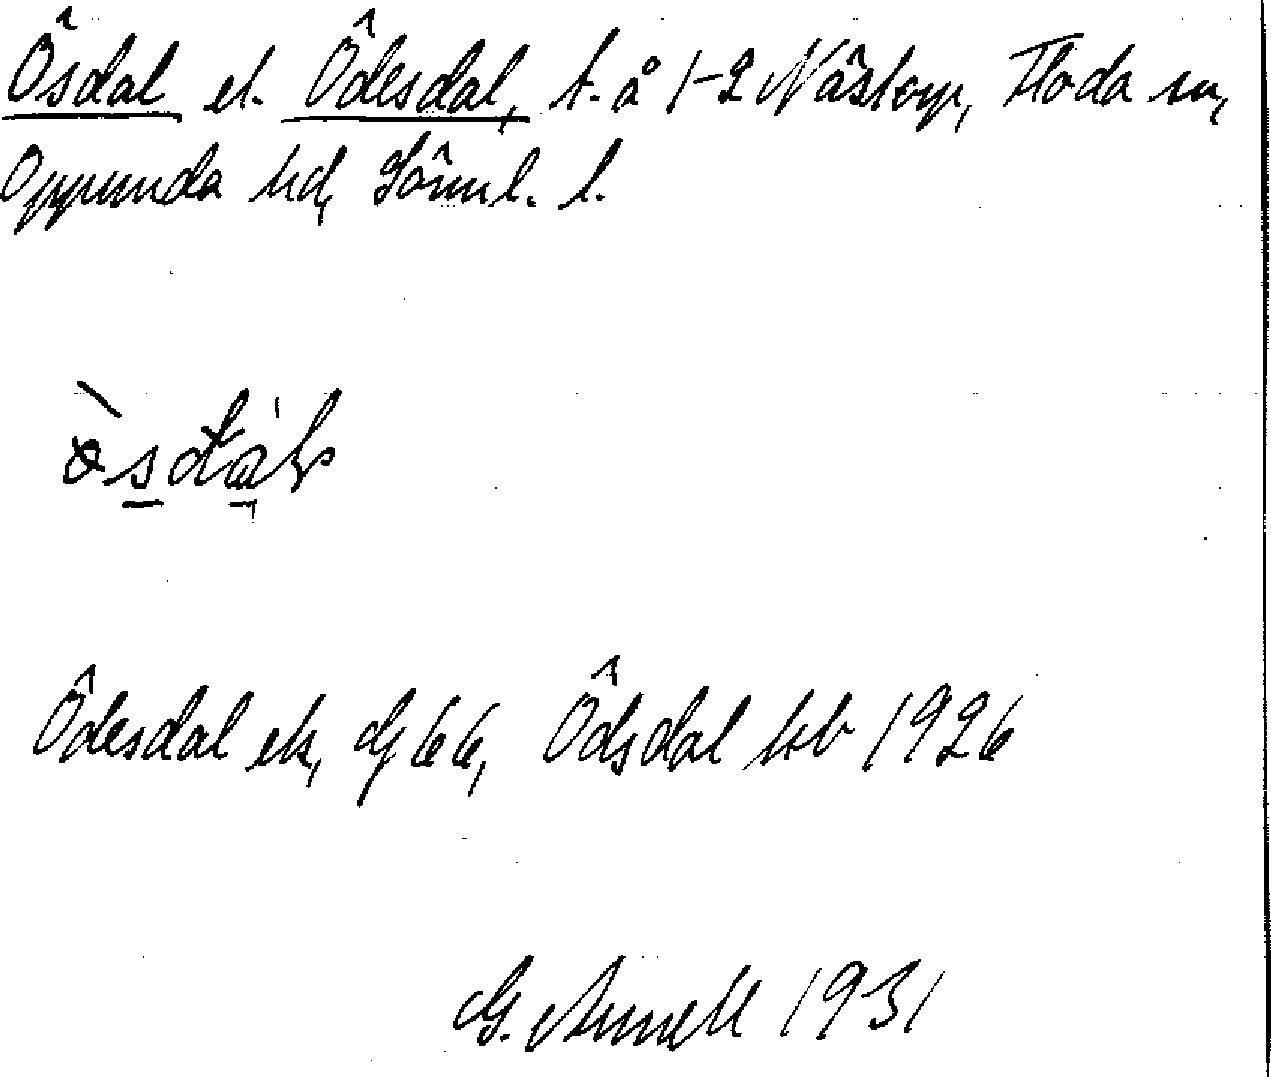 Ösdal el. Ödesdal, t. å 1-2 Nästorp, Floda sn,
Oppunda hd, Sörml. l.
Ödesdal ek, Gf 66, Ödsdal kb 1926
G. Annell 1931